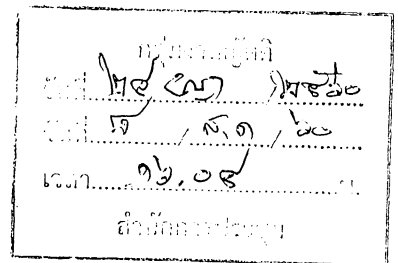 กลุ่มงานญัตติ
รับที่ ๒๔ (ญ) / ๒๕๖๐
วันที่ ๘ / ส.ค / ๖๐
เวลา ๑๖.๐๔ น.
สำนักการประชุม